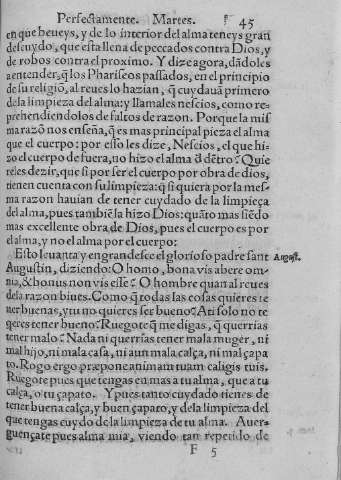 Perfectamente. Martes. 45
en que beueys, y de lo interior del alma teneys gran
descuydo, que esta llena de peccados contra Dios, y
de robos contra el proximo. Y dize agora, dãdoles
a entender, q̃ los Phariseos passados, en el principio
de su religiõ, al reues lo hazian, q̃ cuydauã primero
de la limpieza del alma: y llamales nescios, como re-
prehendiendolos de faltos de razon. Porque la mis
ma razõ nos enseña, q̃ es mas principal pieza el alma
que el cuerpo: por esso les dize, Nescios, el que hi-
zo el cuerpo de fuera, no hizo el alma d̃ dẽtro? Quie
re les dezir, que si por ser el cuerpo por obra de dios,
tienen cuenta con su limpieza: q̃ si quiera por la mes-
ma razon hauian de tener cuydado de la limpieça
del alma, pues tambiẽ la hizo Dios: quãto mas siẽdo
mas excellente obra de Dios, pues el cuerpo es por
el alma, y no el alma por el cuerpo:
Esto leuanta y engrandesce el glorioso padre sant
August.
Augustin, diziendo: O homo, bona vis abere om-
nia, & bonus non vis esse? O hombre quan al reues
de la razon biues. Como q̃ todas las cosas quieres te
ner buenas, y tu no quieres ser bueno? A ti solo no te
q̃eres tener bueno? Ruegote q̃ me digas, q̃ querrias
tener malo? Nada ni querrias tener mala muger, ni
mal hijo, ni mala casa, ni aun mala calça, ni mal çapa
to. Rogo ergo præpone animam tuam caligis tuis.
Ruegote pues que tengas en mas a tu alma, que a tu
calça, o tu çapato. Y pues tanto cuydado tienes de
tener buena calça, y buen çapato, y de la limpieza del
que tengas cuydo de la limpieza de tu alma. Auer-
guençate pues alma mia, viendo tan repetido de
F 5